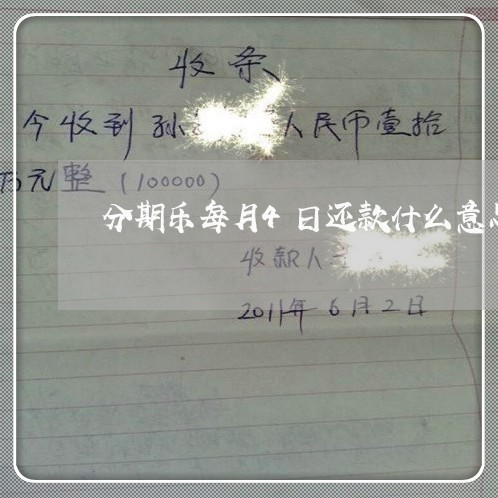 收条
今收到孙 人民币壹拾
万元整(100000)
分期乐每月4日还款什么意
收款人
2011年6月2日